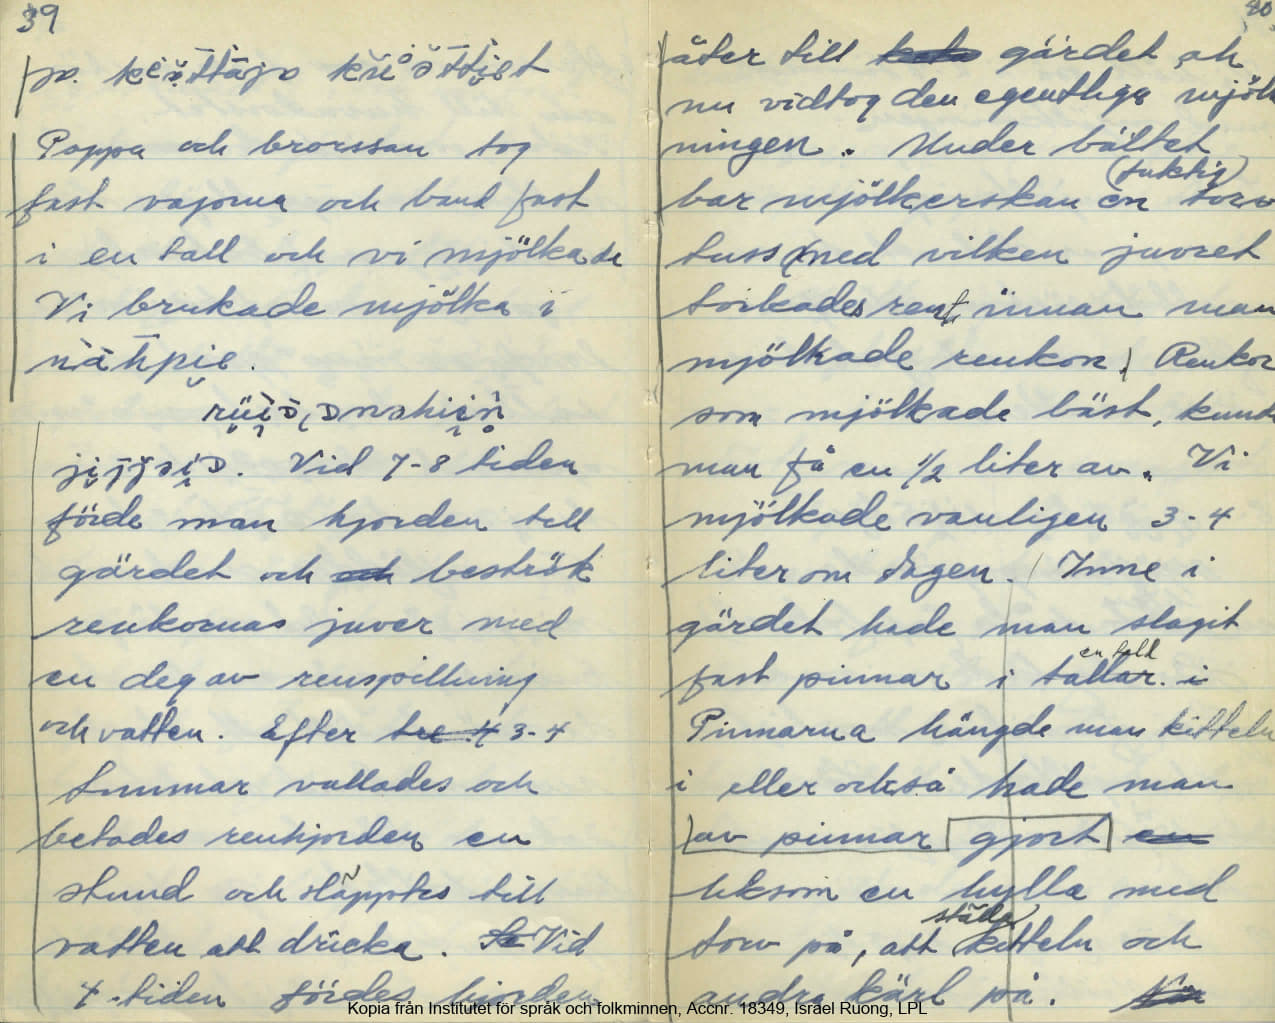 39
Pappa och brorssan tog
fast vajorna och band fast
i en tall och vi mjölkade
Vi brukade mjölka i
nāhpie.
Vid 7-8 tiden
förde man hjorden till
gärdet och och beströk
renkornas juver med
en deg av renspillning
och vatten. Efter tre 4 3-4
timmar vallades och
betades renhjorden en
stund och släpptes till
vatten att dricka. Vid
4-tiden fördes hjorden
40
åter till gärdet och
nu vidtog den egentliga mjölk
ningen. Under bältet
(fuktig)
bar mjölkerskan en torv
tuss med vilken juvret
torkades rent innan man
mjölkade renkon. Renkor
som mjölkade bäst, kunde
man få en 1/2 liter av. Vi
mjölkade vanligen 3-4
liter om dagen. Inne i
gärdet hade man slagit
en tall
fast pinnar i tallar. i
Pinnarna hängde man kitteln
i eller också hade man
av pinnar gjort en
liksom en hylla med
ställa
torv på, att kitteln och
andra kärl på.
Kopia från Institutet för språk och folkminnen, Accnr. 18349, Israel Ruong, LPL